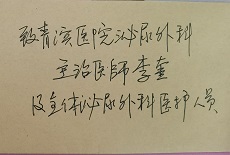 致青滨医院泌尿外科
主治医師李奎
及全体泌尿外科医护人员